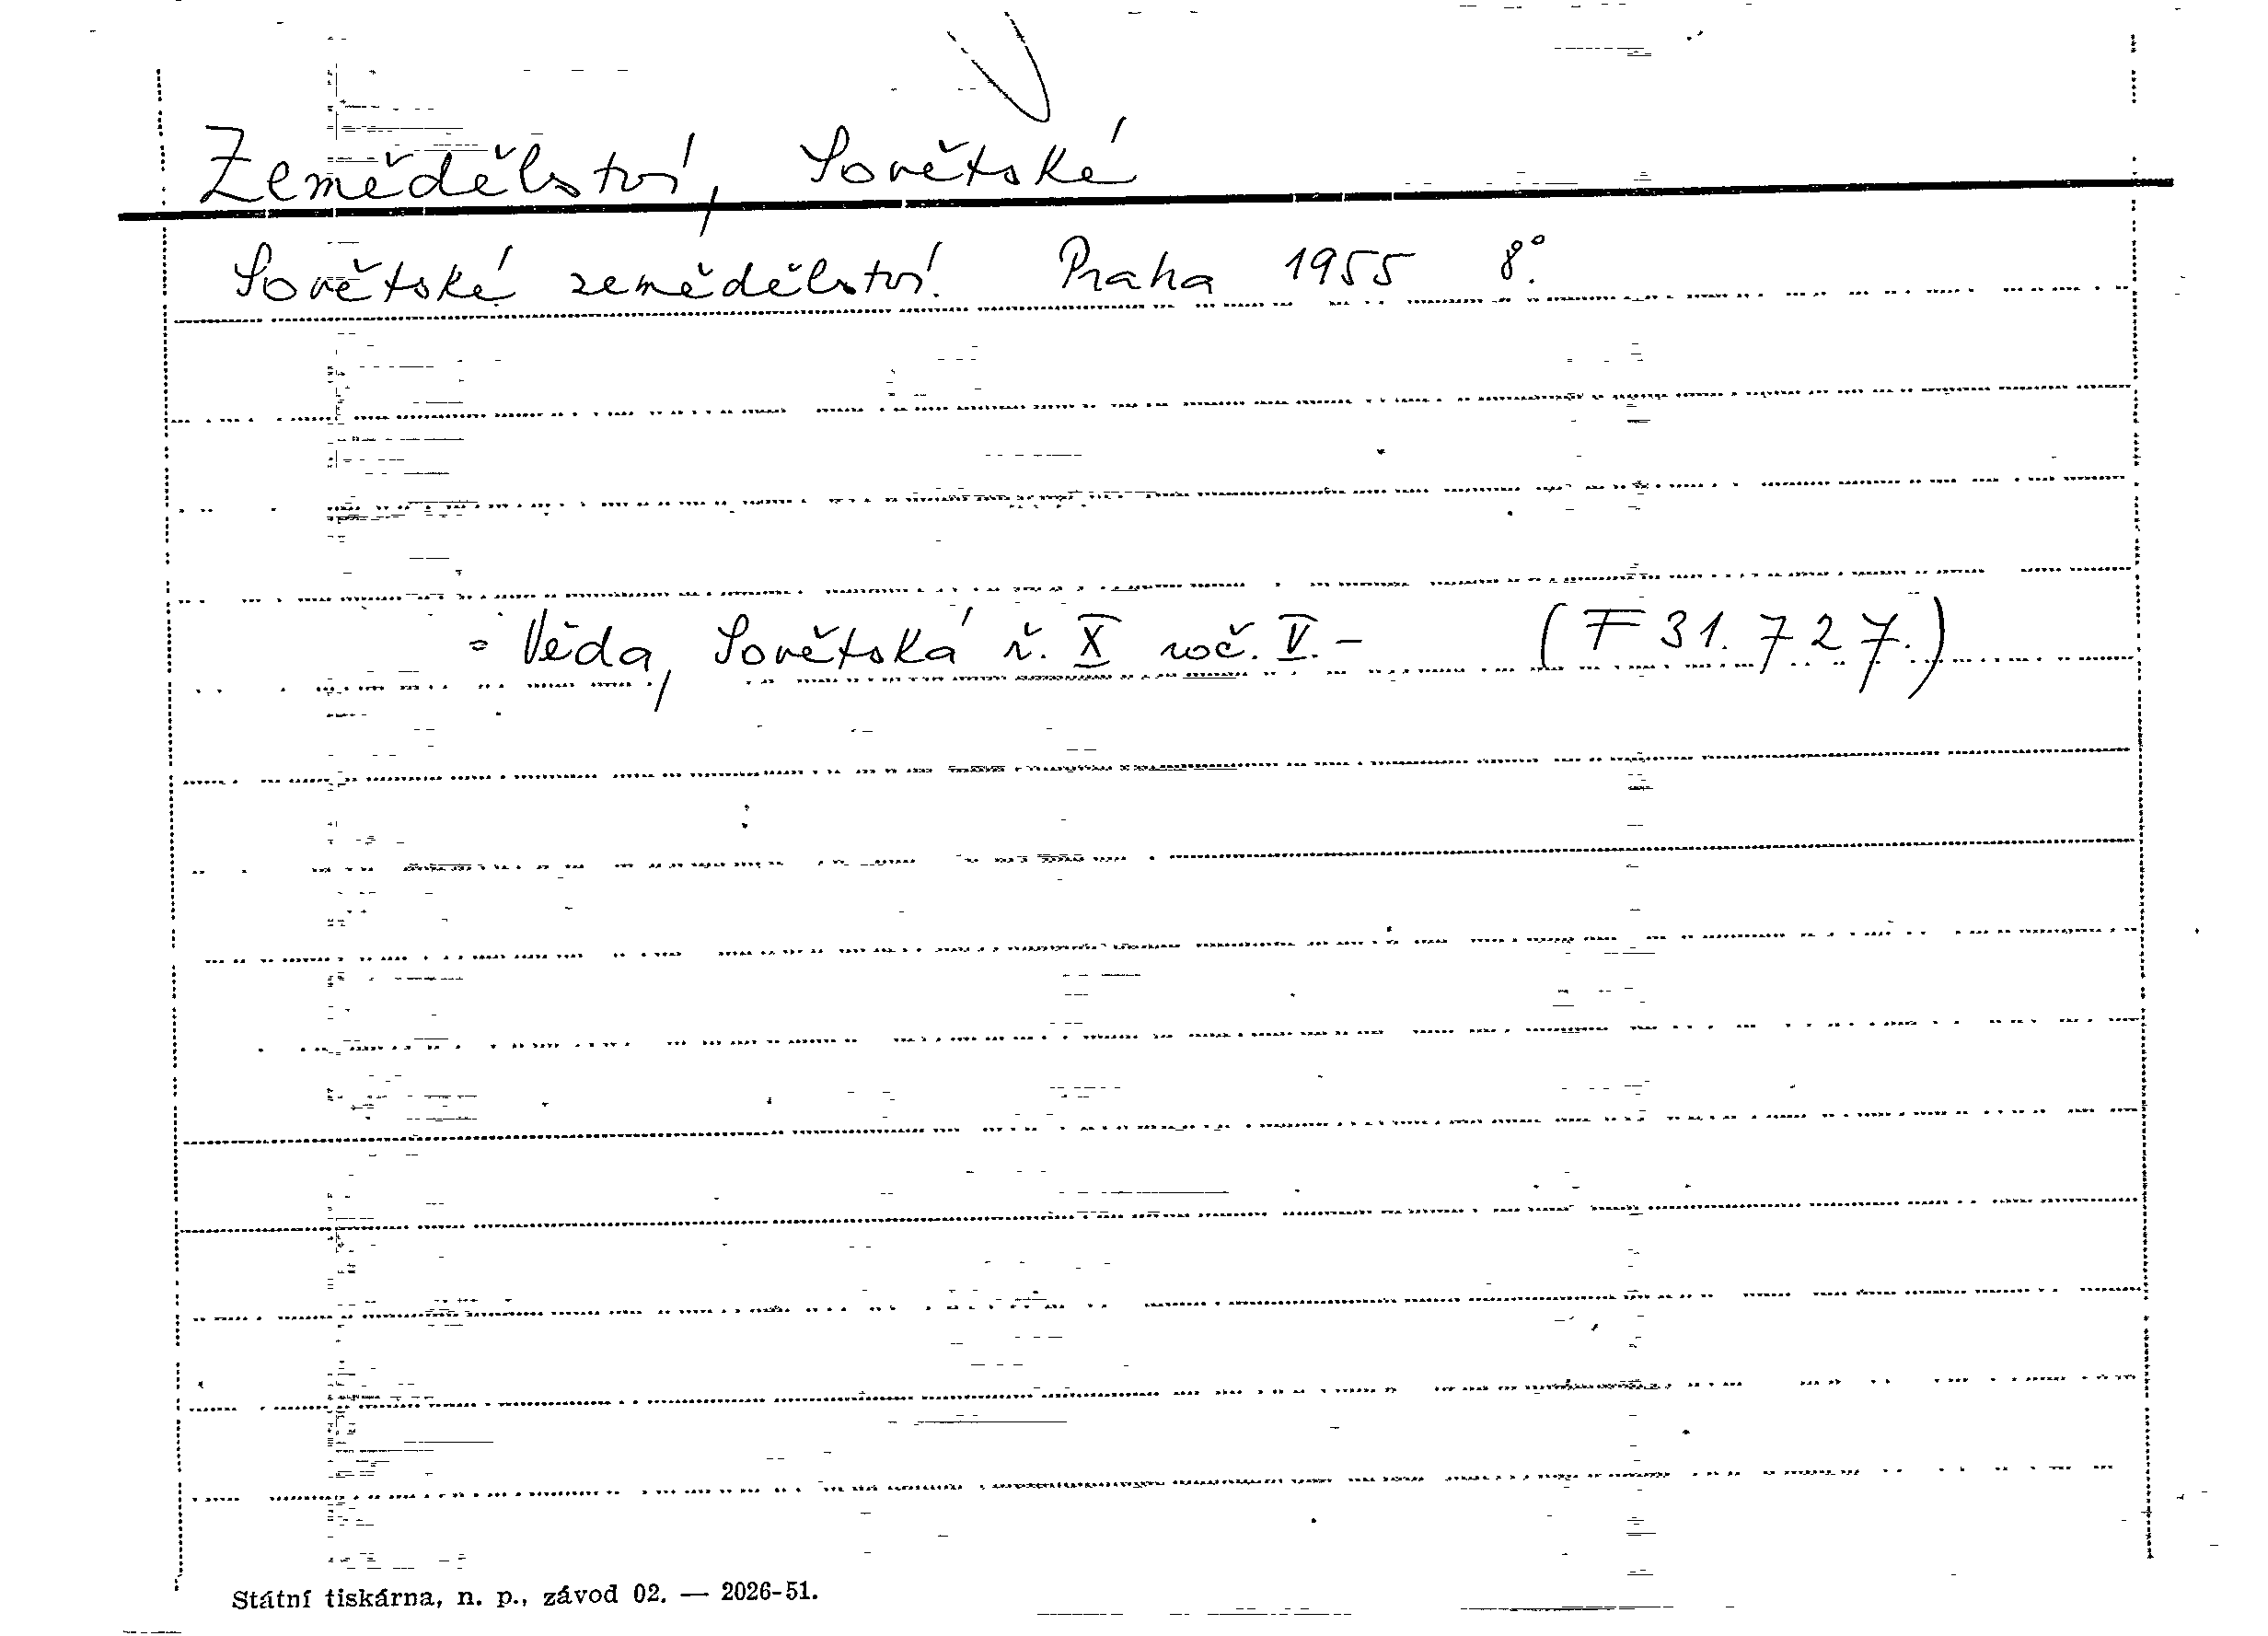 Zemědělství, Sovětské
Sovětské zemědělství. Praha 1955 8°.
= Věda, Sovětská ř. X roč. V. - (F 31.727.)
Státní tiskárna, n. p., závod 02. — 2026-51.